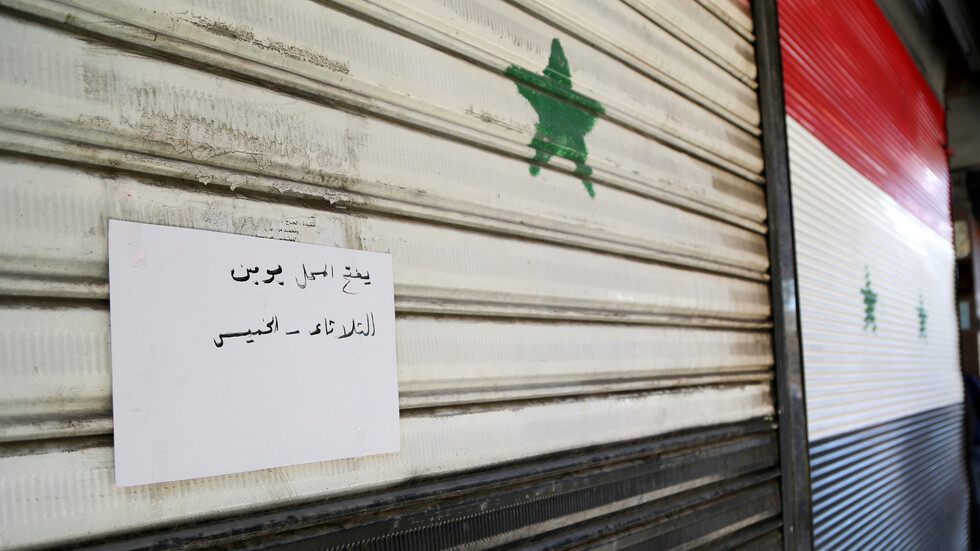 يفتح المحل يومين
الثلاثاء - الخميس